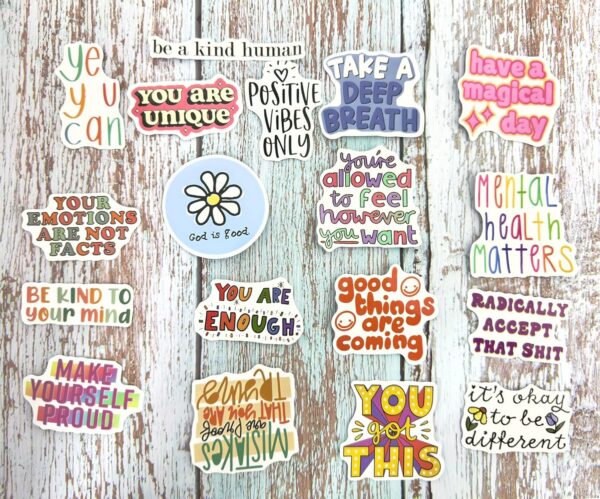 be a kind human
yes
you
can
YOU ARE
UNIQUE
POSITIVE
ViBES
ONLY
TAKE A
DEEP
BREATH
have a
magical
day
YOUR
EMOTIONS
ARE NOT
FACTS
God is good.
you're
allowed
to feel
however
you want
Mental
health
MATTERS
BE KIND TO
your mind
YOU ARE
ENOUGH
good
things
are
coming
RADICALLY
ACCEPT
THAT SHIT
MAKE
YOURSELF
PROUD
MISTAKES
are proof
THAT YOU ARE
TRYING
YOU
got
THIS
it's okay
to be
different